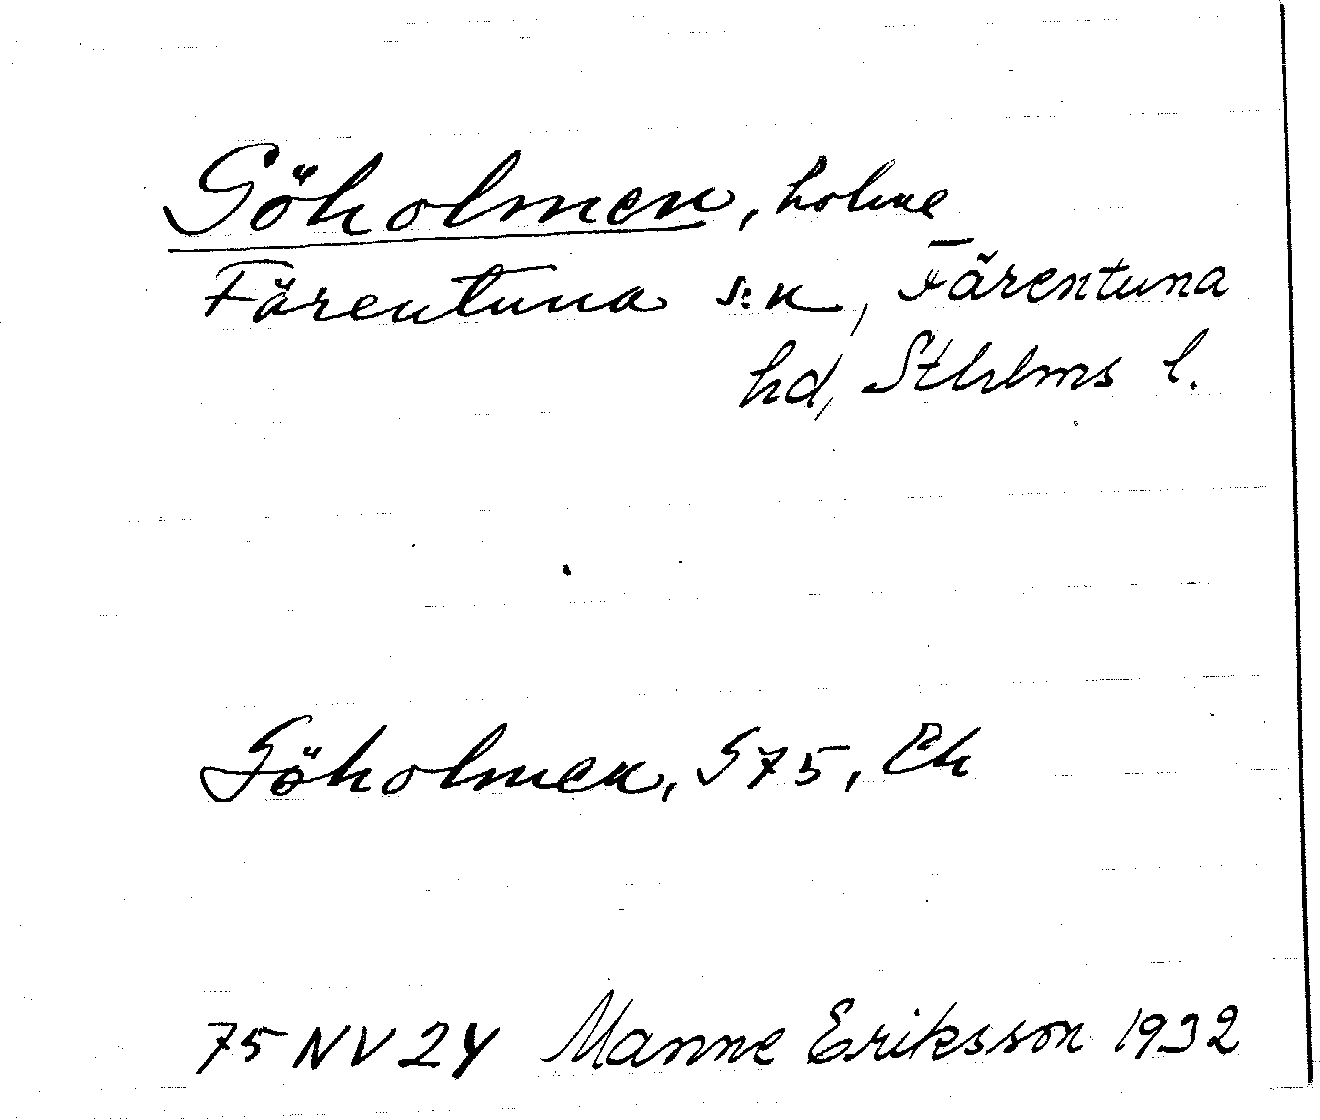 Göholmen, holme
Färentuna s:n, Färentuna
hd, Sthlms l.
Göholmen, G75, Ek
75 NV 24 Manne Eriksson 1932